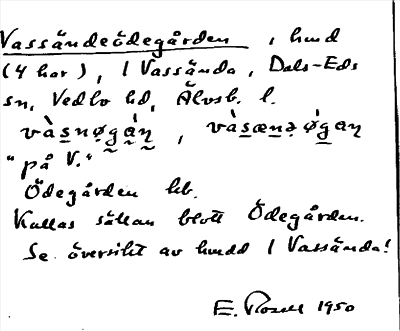 Vassändeödegården, hmd
(4 har), I Vassända, Dals-Eds
sn, Vedbo hd, Älvsb. l.
"på V."
Ödegården hb.
Kallas sällan blott Ödegården.
Se översikt av hmdd I Vassända!
E. 1950